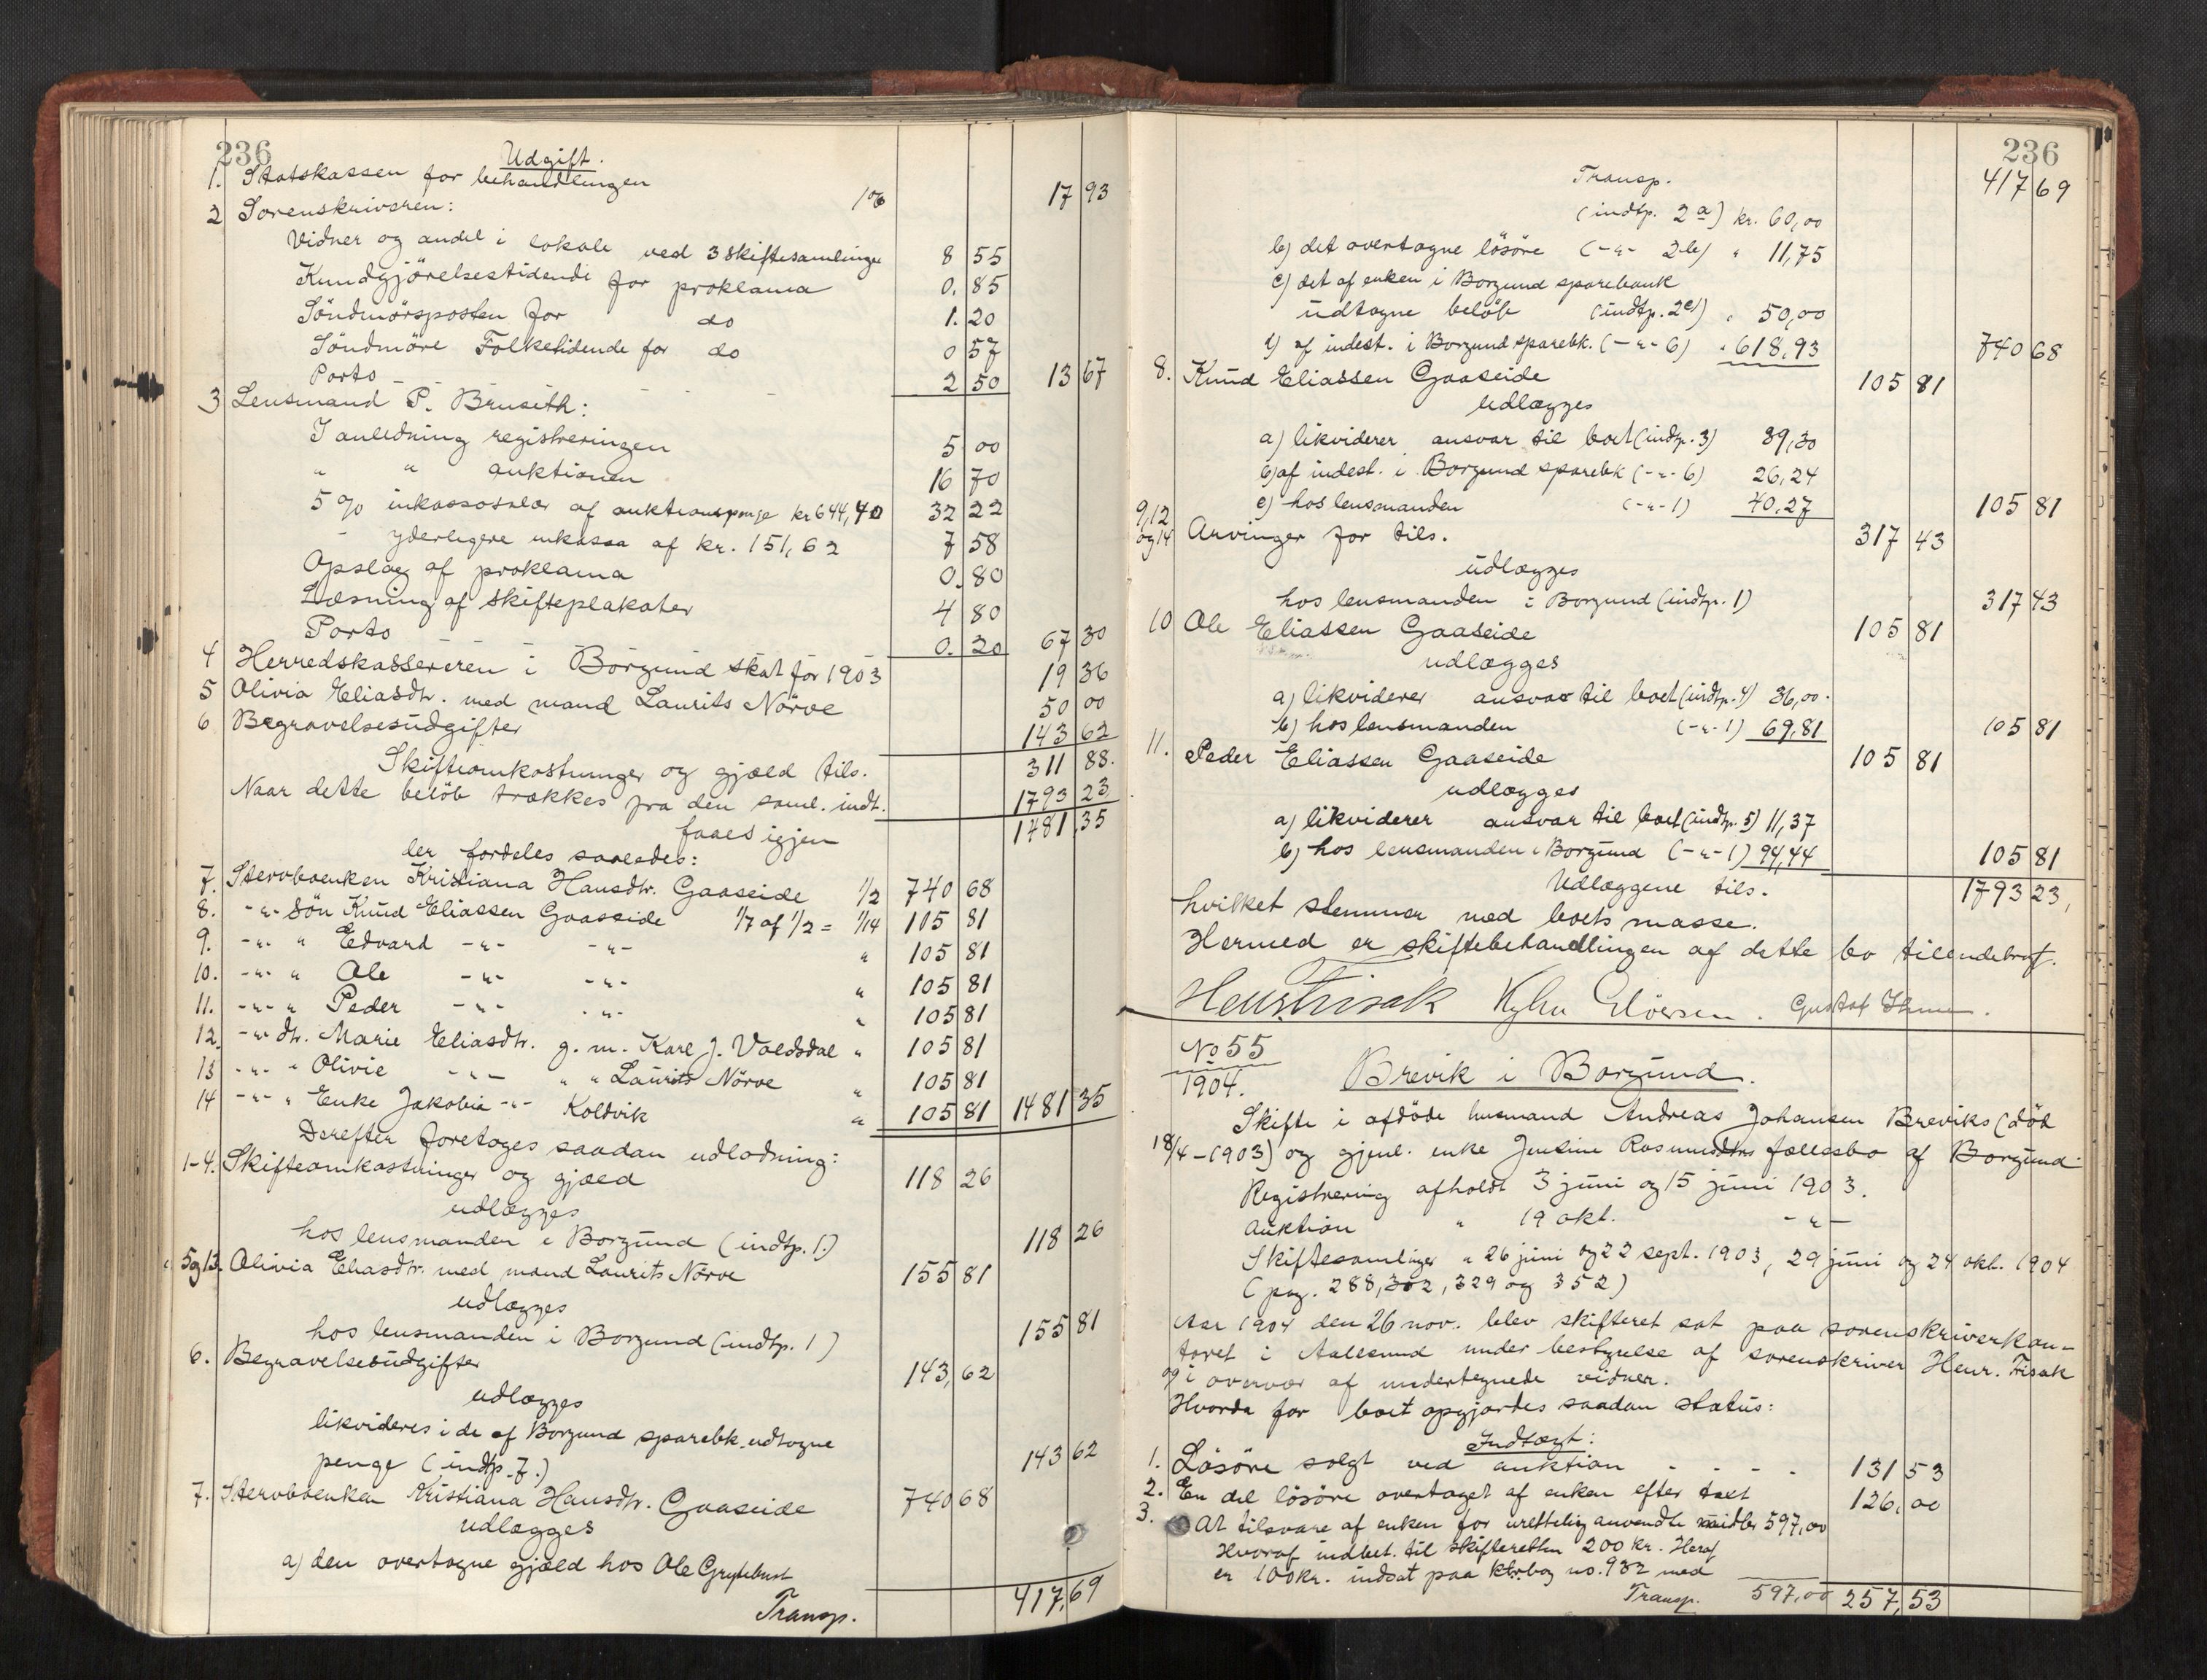 236
Udgift.
1. Statskassen for behandlingen 1% 17 93
2 Sorenskriveren:
Vidner og andel i lokale ved 3 skiftesamlinger 8 55
Kundgjörelsestidende for proklama 0. 85
Söndmörsposten for do 1. 20
Söndmöre Folketidende for do 0 57
Porto 2 50 13 67
3 Lensmand P. Bruseth:
I anledning registreringen 5 00
" " auktionen 16 70
5 % inkassosalær af auktionspenge kr 644,40 32 22
- yderligere inkassa af kr. 151,62 7 58
Opslag af proklama 0. 80
Læsning af skifteplakater 4 80
Porto 0. 20 67 30
4 Herredskassereren i Borgund skat for 1903 19 36
5 Olivia Eliasdtr. med mand Laurits Nörve 50 00
6 Begravelsesudgifter 143 62
Skifteomkostninger og gjæld tils. 311 88.
Naar dette belöb trækkes fra den saml. indt. 1793 23
faaes igjen 1481,35
der fordeles saaledes:
7. Stervboenken Kristiana Hansdtr. Gaaseide 1/2 740 68
8. -"- Sön Knud Eliassen Gaaseide 1/7 af 1/2 = 1/14 105 81
9. -"- " Edvard -"- -"- " 105 81
10. -"- " Ole -"- -"- " 105 81
11. -"- " Peder -"- -"- " 105 81
12. -"- dtr. Marie Eliasdtr. g. m. Karl J. Valdsdal " 105 81
13 -"- " Olivie -"- " " Laurits Nörve " 105 81
14 -"- " Enke Jakobia -"- Koldvik " 105 81 1481 35
Derefter foretoges saadan udlodning:
1-4. Skifteomkostninger og gjæld 118 26
udlægges
hos lensmanden i Borgund (indtp. 1.) 118 26
5 og 13. Olivia Eliasdtr. med mand Laurits Nörve 155 81
udlægges
hos lensmanden i Borgund (indtp. 1) 155 81
6. Begravelsesudgifter 143, 62
udlægges
likvideres i de af Borgund sparebk. udtagne
penge (indtp. 7.) 143 62
7. Stervboenken Kristiana Hansdtr. Gaaseide 740 68
udlægges
a) den overtagne gjæld hos Ole Grytebust
Transp. 417,69
236
Transp. 417 69
(indtp. 2 a) kr. 60,00
b) det overtagne lösöre (-"- 2 b) " 11,75
c) det af enken i Borgund sparebank
udtagne belöb (indtp. 2c) " 50,00
d) af indest. i Borgund sparebk. (-"- 6) " 618,93 740 68
8. Knud Eliassen Gaaseide 105 81
udlægges
a) likviderer ansvar til boet (indtp. 3) 39,30
b) af indest. i Borgund sparebk (-"- 6) 26,24
c) hos lensmanden (-"- 1) 40,27 105 81
9,12
og 14 Arvinger for tils. 317 43
udlægges
hos lensmanden i Borgund (indtp. 1) 317 43
10 Ole Eliassen Gaaseide 105 81
udlægges
a) likviderer ansvar til boet (indtp. 4) 36,00
b) hos lensmanden (-"- 1) 69,81 105 81
11. Peder Eliassen Gaaseide 105 81
udlægges
a) likviderer ansvar til boet (indtp. 5) 11,37
b) hos lensmanden i Borgund (-"- 1) 94,44 105 81
Udlæggene tils. 1793 23,
hvilket stemmer med boets masse.
Hermed er skiftebehandlingen af dette bo tilendebragt.
Henr. Finsak
No 55
1904. Brevik i Borgund.
Skifte i afdöde husmand Andreas Johansen Breviks (död
18/4-1903) og gjenl. enke Jensine Rasmusdtrs fællesbo af Borgund
Registrering afholdt 3 juni og 15 juni 1903.
Auktion " 19 okt. -"-
Skiftesamlinger " 26 juni og 22 sept. 1903, 29 juni og 24 okt. 1904
(pag. 288, 302, 329 og 352)
Aar 1904 den 26 nov. blev skifteret sat paa sorenskriverkon-
toret i Aalesund under bestyrelse af sorenskriver Henr. Finsak
og i overvær af undertegnede vidner.
Hvorda for boet opgjordes saadan status:
Indtægt:
1. Lösöre solgt ved auktion - - - - 131 53
2. En del lösöre overtaget af enken efter taxt 126, 00
3. At tilsvare af enken for urettelig anvendte midler 597,00
Hvoraf indbet. til skifteretten 200 kr. Heraf
er 100 kr. indsat paa ktrbog no. 932 med
Transp. 597,00 257,53